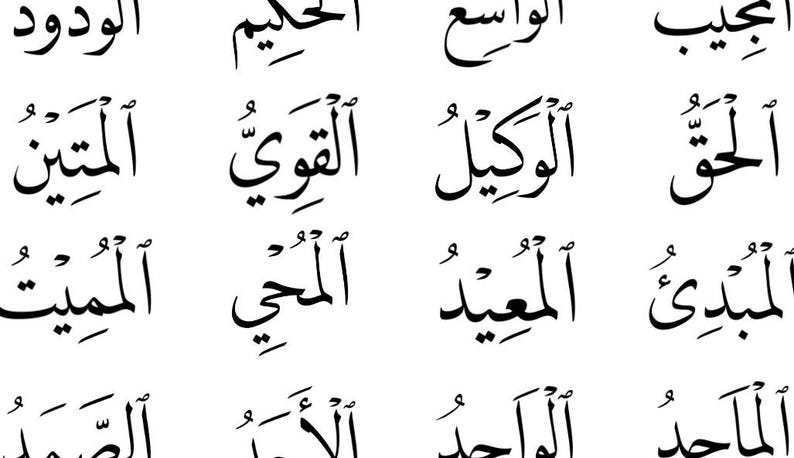 ٱلمجيب ٱلواسع ٱلحكيم ٱلودود
ٱلْحَقُّ ٱلْوَكِيْلُ ٱلْقَوِيُّ ٱلْمَتِيْنُ
ٱلْمُبْدِئُ ٱلْمُعِيْدُ ٱلْمُحْيِ ٱلْمُمِيْتُ
ٱلْمَاجِدُ ٱلْوَاحِدُ ٱلْأَحَدُ ٱلصَّمَدُ